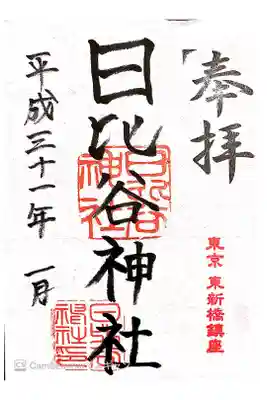 奉拝
東京 東新橋鎮座
日比谷神社
日比谷神社
平成三十一年 一月
CS CamScanner